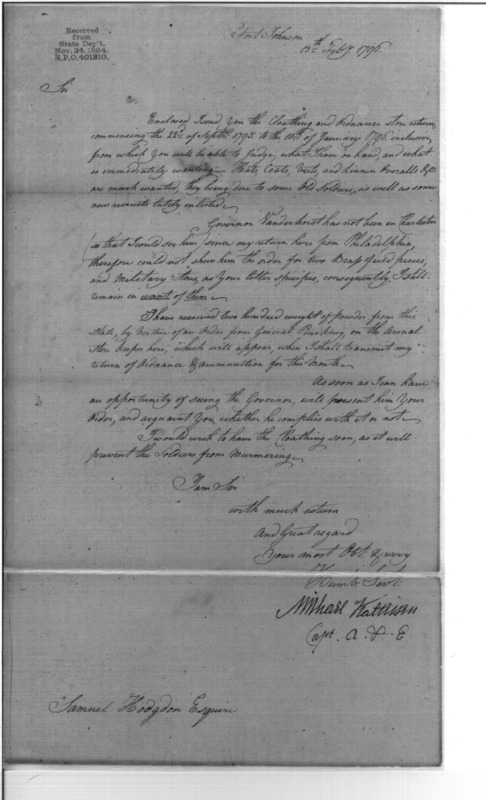 Received
from
State Dep't.
Nov. 24, 1894.
R.P.O, 401310.
Fort Johnson
13th Feby 1796.
Sir
Enclosed I send you the Cloathing and Ordnance store return,
commencing the 22d of Septr 1795 to the 10th of January 1796 inclusive,
from which you will be able to Judge, what I have on hand, and what
is immediately wanting. Hats, Coats, Vests, and Linnen Overalls &c
are much wanted, they being due to some Old Soldiers, as well as some
new recruits lately enlisted.
Governor Vanderhorst has not been in Charleston
so that I could see him, since my return here from Philadelphia,
therefore could not shew him the order for two Brass field pieces,
and Military Stores, as Your letter specifies, consequently, I shall
remain in want of them.
I have received two hundred weight of powder from this
State, by virtue of an Order from General Pinckney, on the Arsenal
Store keeper here, which will appear, when I shall transmit my
return of Ordnance & ammunition for this Month.
As soon as I can have
an opportunity of seeing the Governor, will present him Your
Order, and acquaint You, whether he complies with it or not.
I would wish to have the Cloathing soon, as it will
prevent the Soldiers from murmering.
I am Sir
with much esteem
and Great regard
Your most Obt. & very
Humb. Servt.
Michael Kalteisen
Capt. A & E
Samuel Hodgdon Esquire